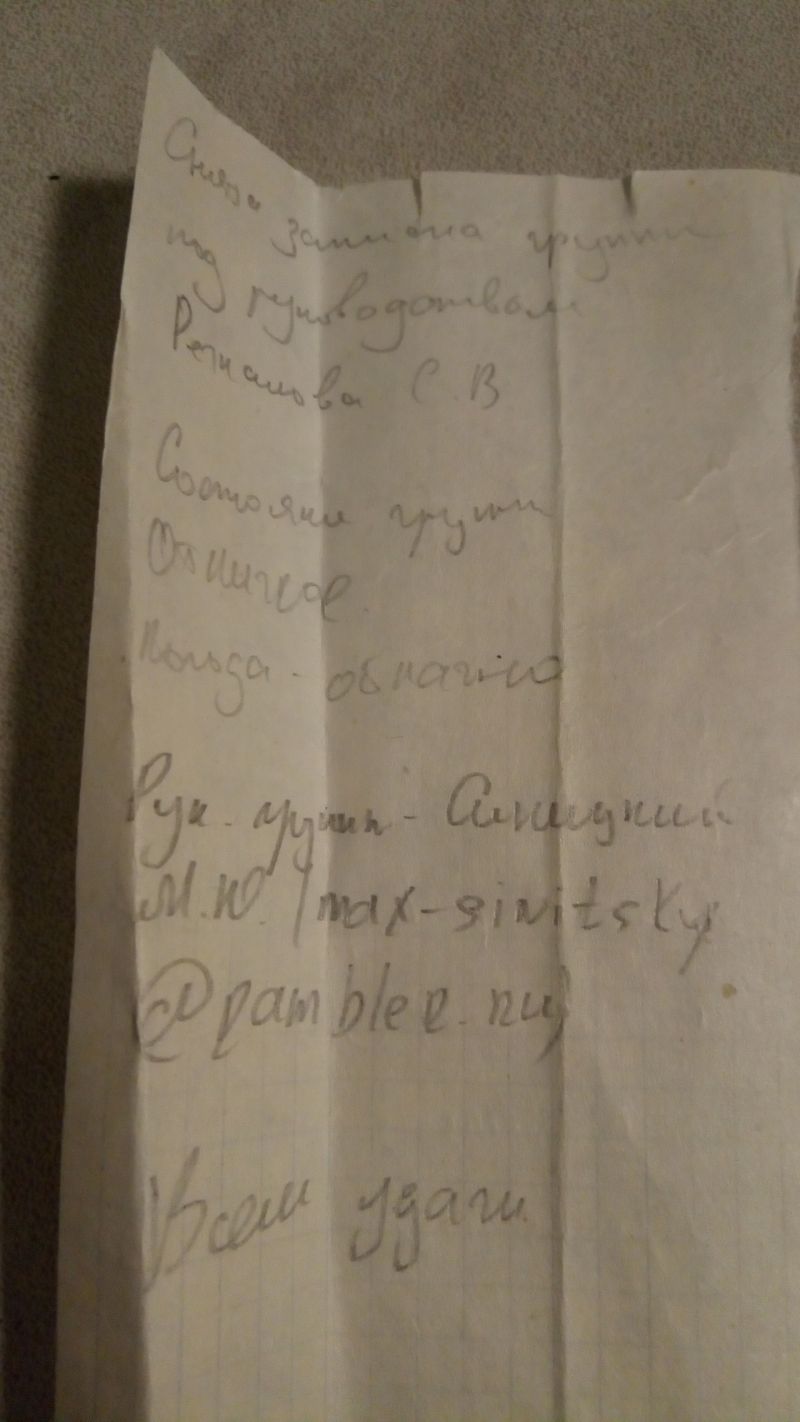 Снята записка группы
под руководством
С.В
Состояние группы
Отличное.
Погода - облачно
Рук. группы - Синицкий
М.Ю. (max-sinitsky
@rambler.ru)
Всем удачи